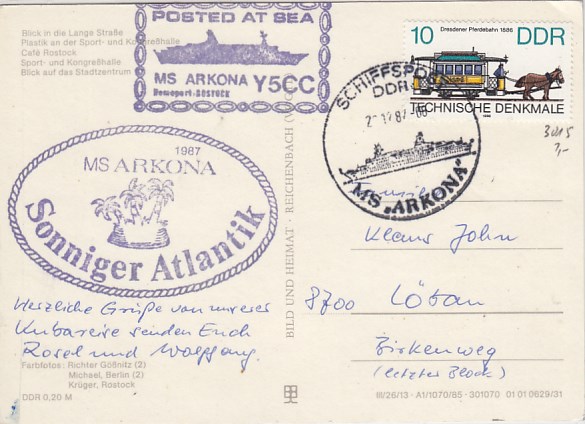 Blick in die Lange Straße
Plastik an der Sport- und Kongreßhalle
Café Rostock
Sport- und Kongreßhalle
Blick auf das Stadtzentrum
POSTED AT SEA
MS ARKONA Y5CC
Homeport-ROSTOCK
Dresdener Pferdebahn 1886
10 DDR
TECHNISCHE DENKMALE
1986
SCHIFFSPOST
DDR
MS „ARKONA”
3015
3,-
1987
MS ARKONA
Sonniger Atlantik
Herzliche Grüße von unserer
Kubareise senden Euch
Rosel und Wolfgang.
Farbfotos: Richter Gößnitz (2)
Michael, Berlin (2)
Krüger, Rostock
DDR 0,20 M
BILD UND HEIMAT · REICHENBACH
Familie
Klaus John
8700 Löbau
Birkenweg
(letzter Block)
III/26/13 · A1/1070/85 · 301070 01 01 0629/31